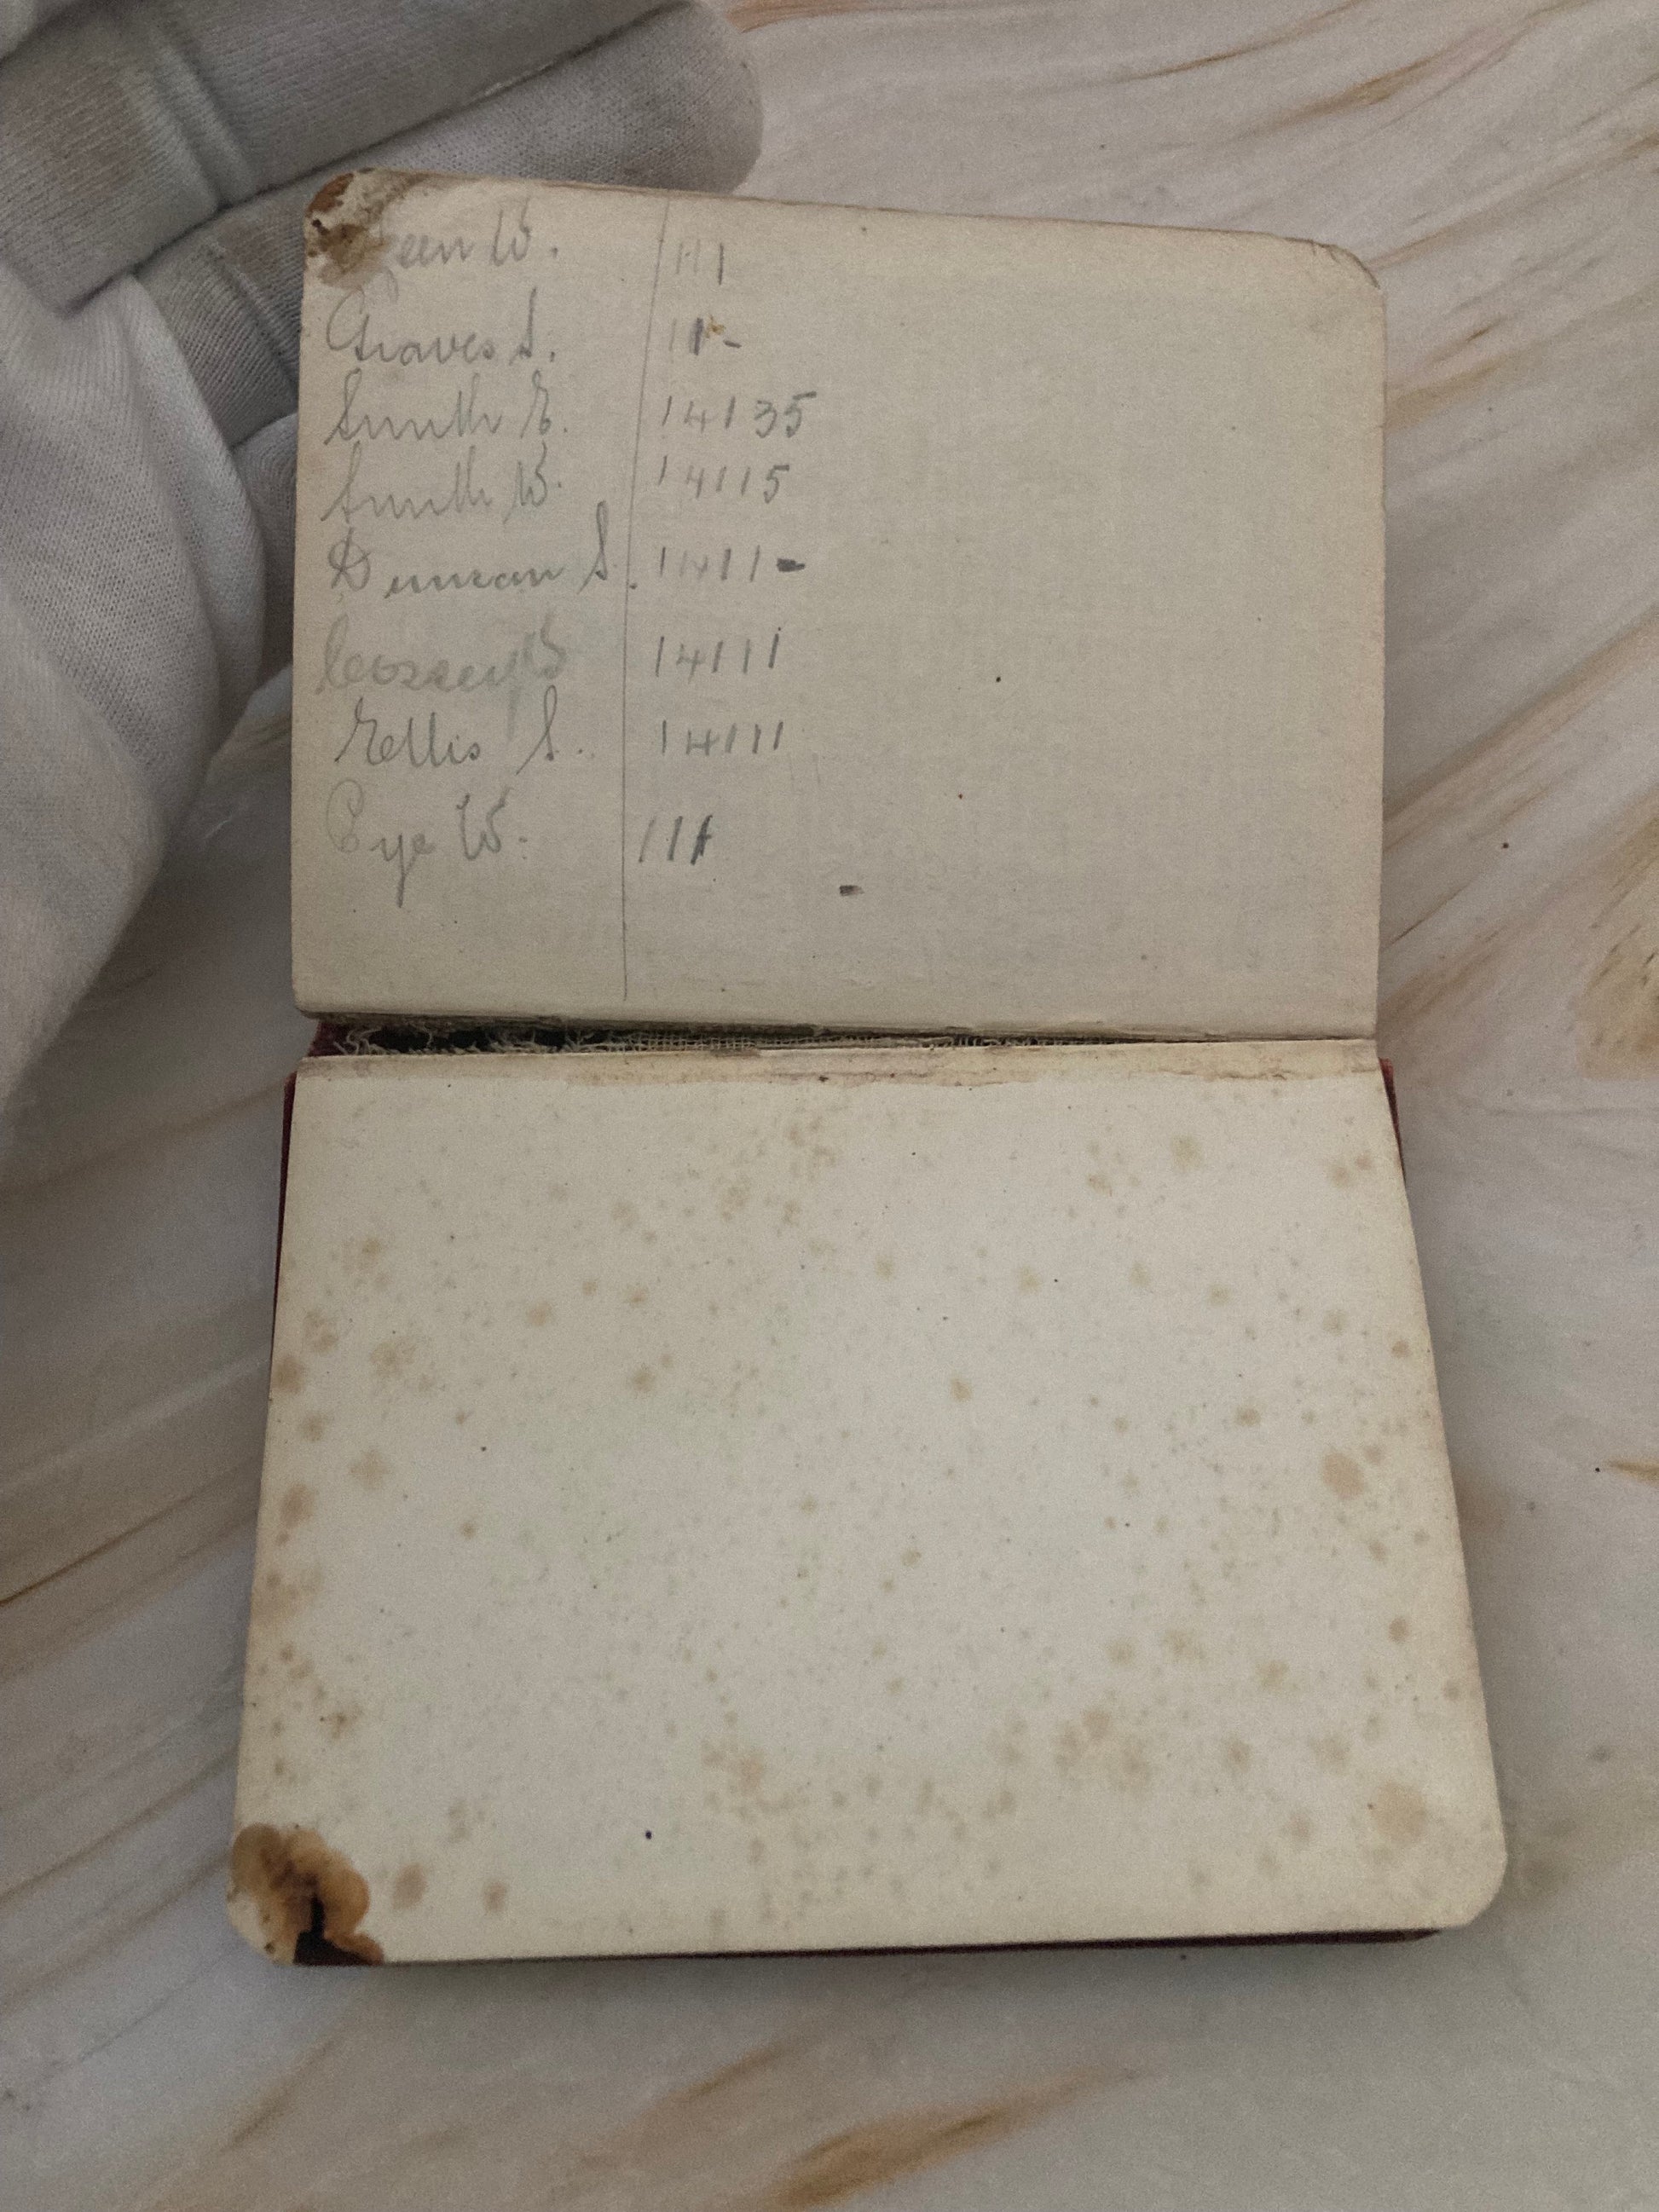 een W. 111
Graves S. 11-
Smith E. 14135
Smith W. 14115
Duncan S. 11411-
W 14111
Ellis S. 14111
Pye W. 111